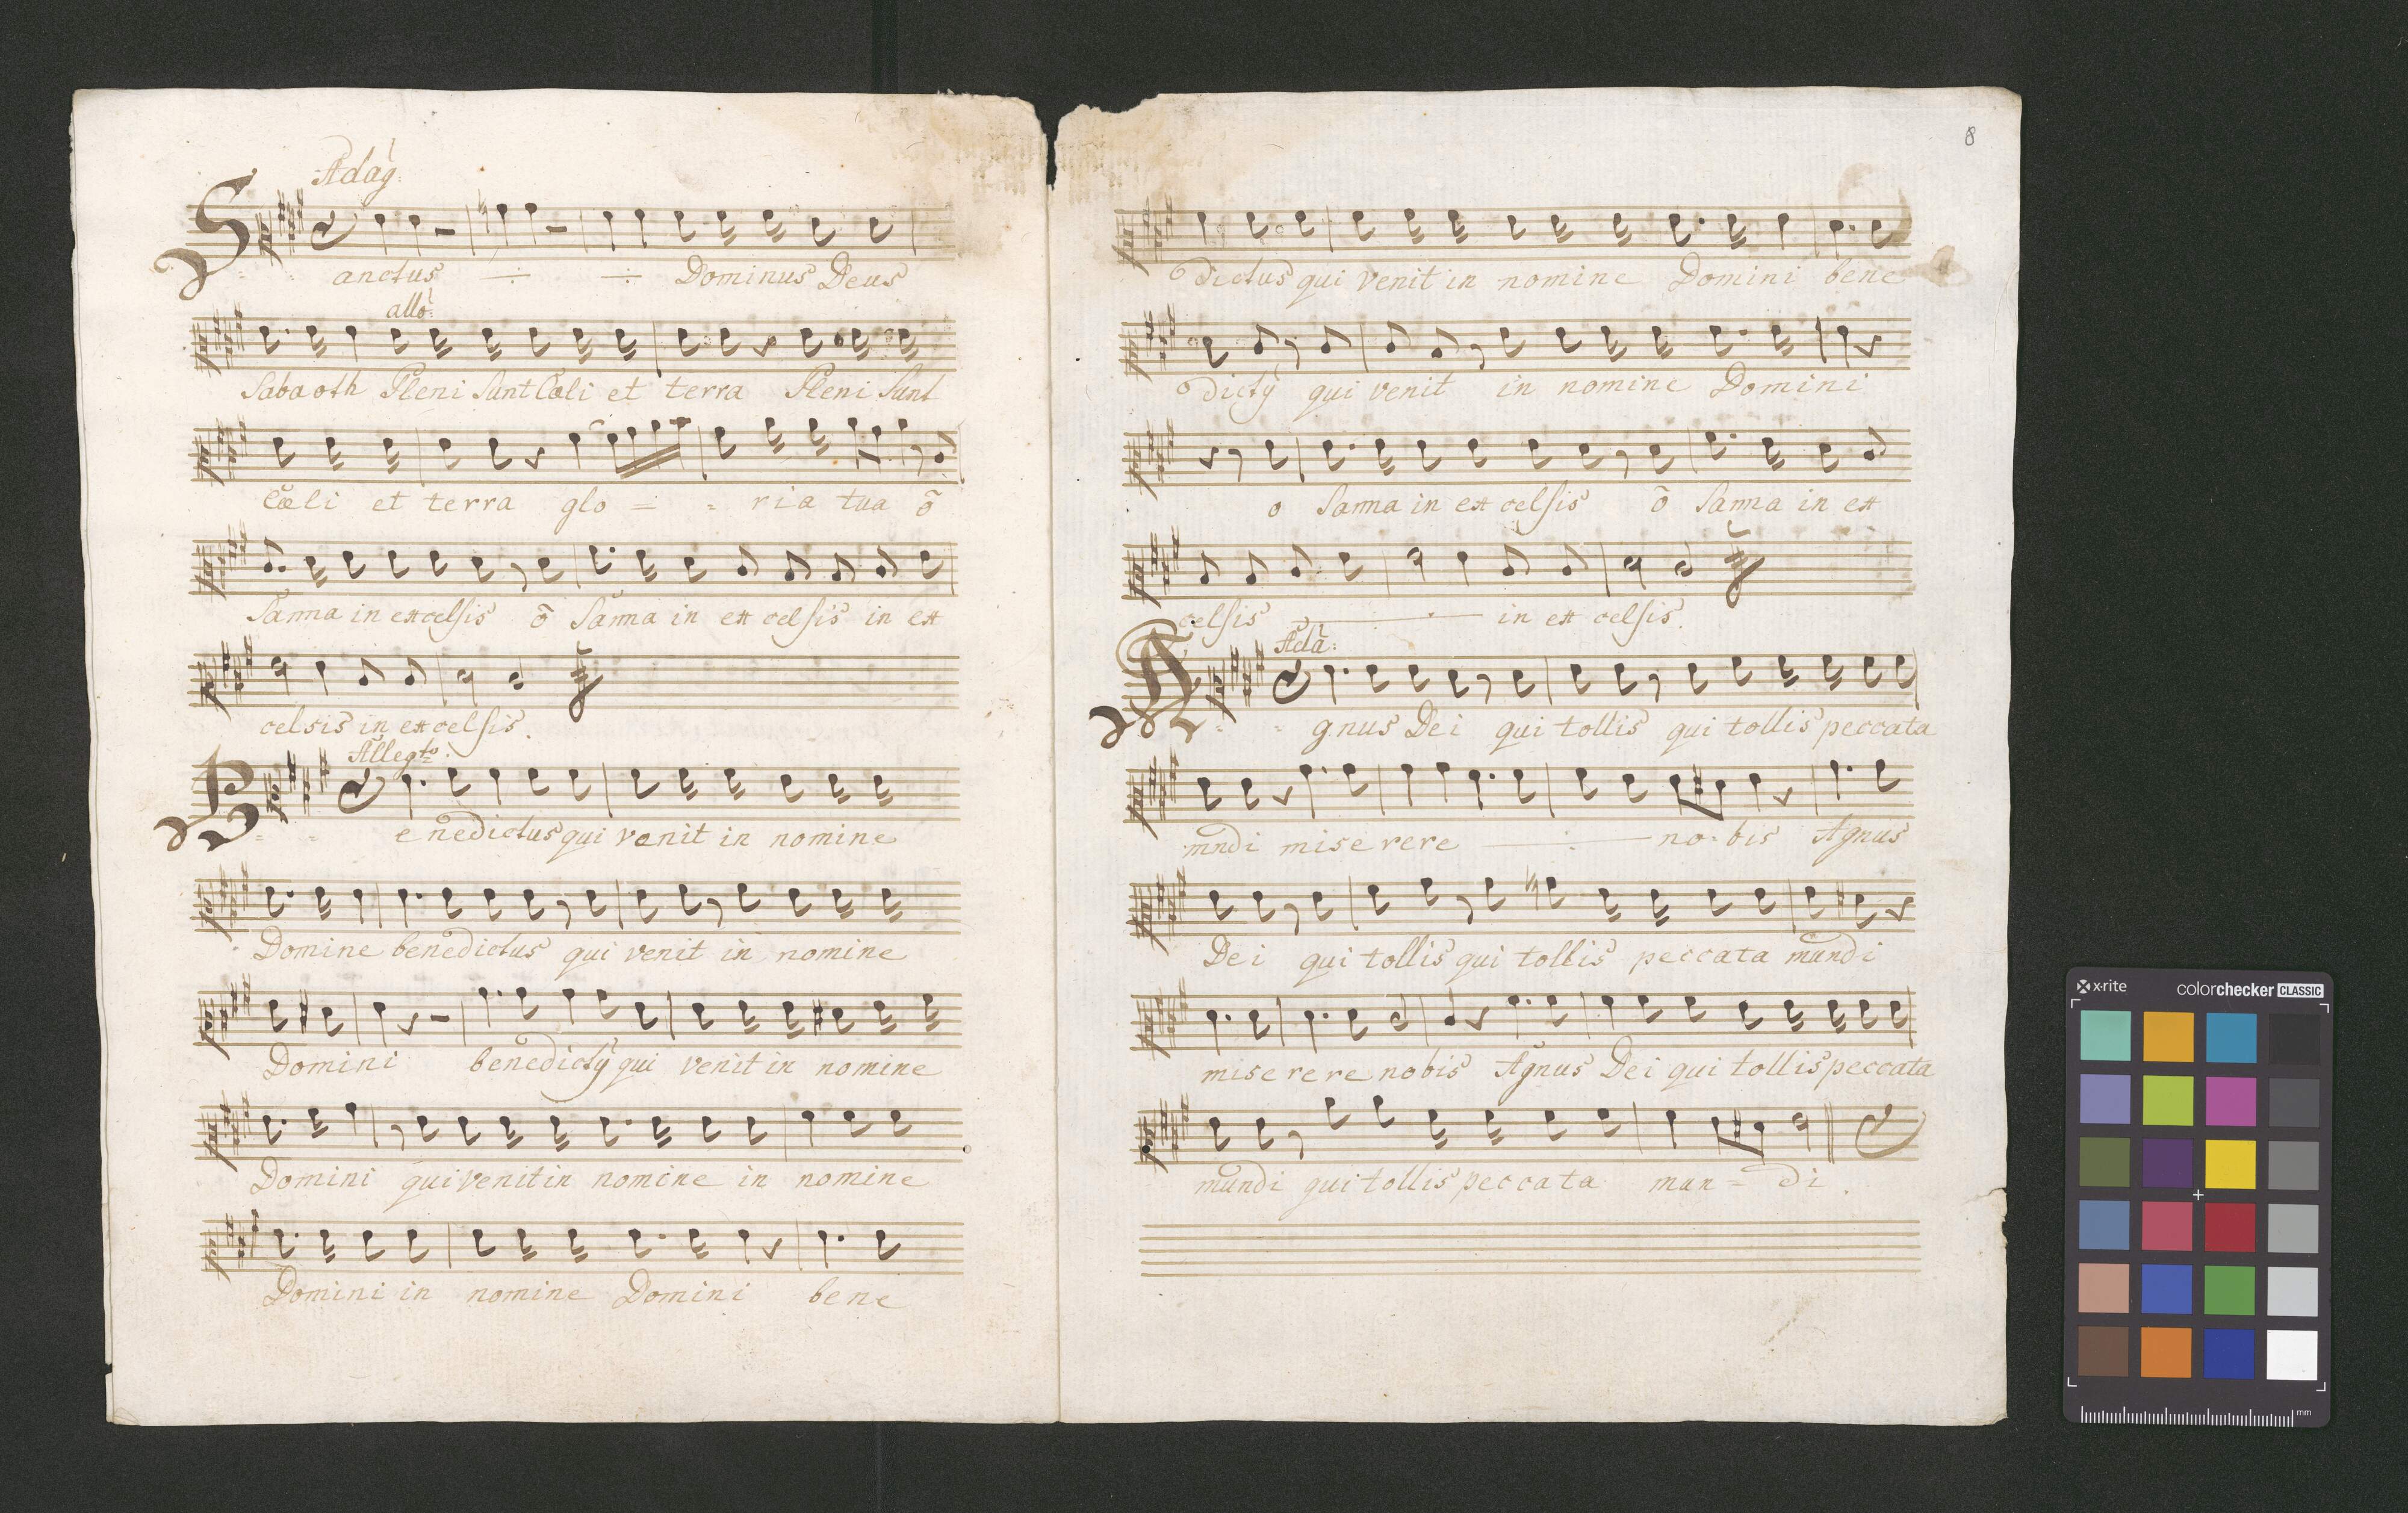 Adag:
Sanctus Dominus Deus
allo:
Sabaoth Pleni sunt Cæli et terra Pleni sunt
Cæli et terra glo = = ria tua õ
sanna in excelsis õ sanna in excelsis in ex
celsis in excelsis.
Allegto:
Benedictus qui venit in nomine
Domine benedictus qui venit in nomine
Domini benedictq qui venit in nomine
Domini qui venit in nomine in nomine
Domini in nomine Domini bene
8
dictus qui venit in nomine Domini bene
dictq qui venit in nomine Domini
o sanna in excelsis õ sanna in ex
celsis in excelsis.
Ada:
Agnus Dei qui tollis qui tollis peccata
mndi miserere no-bis Agnus
Dei qui tollis qui tollis peccata mundi
miserere nobis Agnus Dei qui tollis peccata
mundi qui tollis peccata mun = di.
x-rite colorchecker CLASSIC
mm